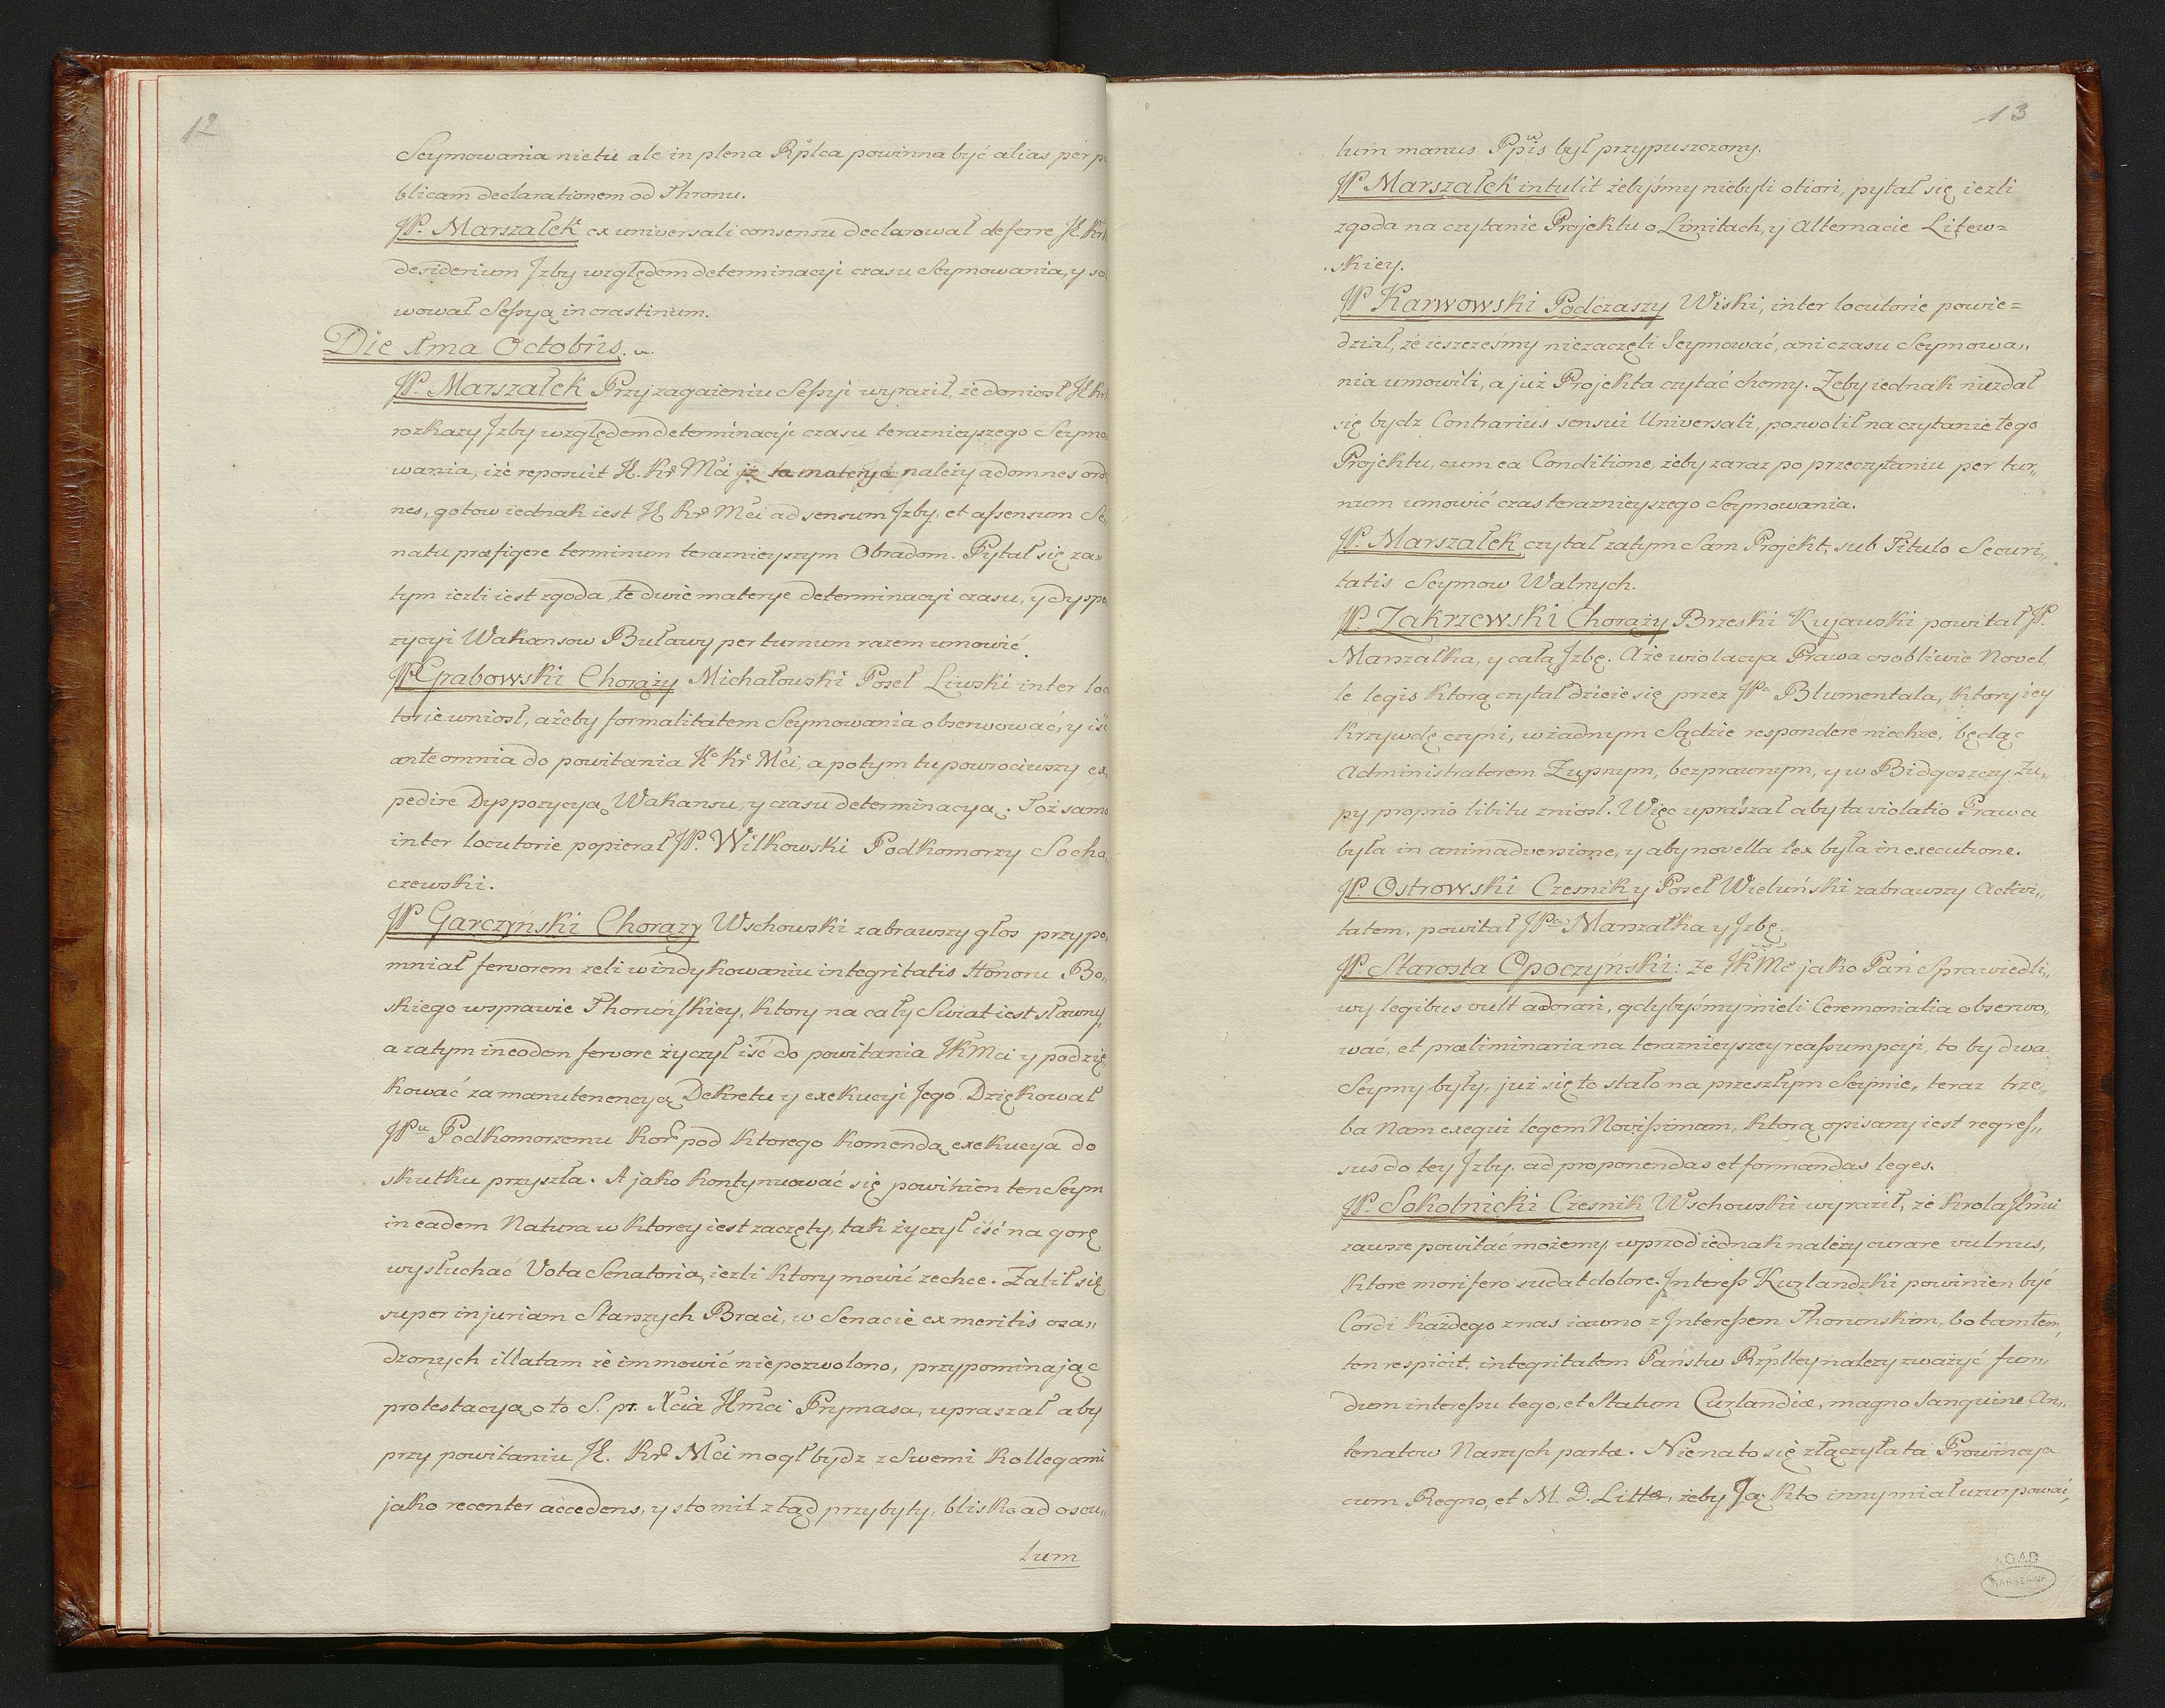 12
Seymowania nietu ale in plena Rplca powinna być alias per pu
blicam declarationem od Thronu.
JP. Marszałek ex universali consensu declarował deferre JK. Kr
desiderium Jzby względem determinacyi czasu Seymowania, y so
wował Sessyą in crastinum.
Die 1ma Octobris.
JP. Marszałek Przy zagaieniu Sessyi wyraził, że doniosł JK Kr
rozkazy Jzby względem determinacyi czasu teraznieyszego Seymo
wania, iże reposuit JK. Kr Mci iż ta materya należy ad omnes ordi
nes, gotow iednak iest JK Kr Mci ad sensum Jzby, et assensum Se„
natu præfigere terminum teraznieyszym Obradom. Pytał się za„
tym iezli iest zgoda, te dwie materye determinacyi czasu, y dyspo
zycyi Wakansow Buławy per turnum razem umowić.
JP Grabowski Chorąży Michałowski Poseł Liwski inter locu
torie wniosł, ażeby formalitatem Seymowania obserwować, y iść
ante omnia do powitania Ko Kr Mci, a potym tu powrociwszy ex,
pedire Dyspozycyą Wakansu, y czasu determinacyą. Toż samo
inter locutorie popierał JP. Wilkowski Podkomorzy Socha„
czewski.
JP Garczyński Chorąży Wschowski zabrawszy głos przypo„
mniał fervorem zeli windykowaniu integritatis Honoru Bo„
skiego wsprawie Thoruńskiey, ktory na cały Swiat iest sławny,
a zatym in eodem fervore życzył iść do powitania JKMci y podzię„
kować za manutenencyą Dekretu y exekucyi Jego. Dziękował
JPu Podkomorzemu Kor pod ktorego komendą exekucya do
skutku przyszła. A jako kontynuować się powinien ten Seym
in eadem Natura w ktorey iest zaczęty, tak życzył iść na gorę
wysłuchać Vota Senatoria, iezli ktory mowić zechce. Zalił się
super injuriam Starszych Braci, w Senacie ex meritis osa„
dzonych illatam że im mowić niepozwolono, przypominając
protestacyą o to S. p. Xcia Jmci Prymasa, upraszał aby
przy powitaniu JK. Kr Mci mogł bydz z Swemi Kollegami
jako recenter accedens, y sto mil ztąd przybyty, blisko ad oscu„
lum
13
lum manus Ppis był przypuszczony.
JP Marszałek intulit żebyśmy niebyli otiosi, pytał się iezli
zgoda na czytanie Projektu o Limitach, y Alternacie Litew=
skiey.
JP Karwowski Podczaszy Wiski, inter locutorie powie=
dział, że ieszcześmy niezaczęli Seymować, ani czasu Seymowa„
nia umowili, a już Projekta czytać chcemy. Żeby iednak niezdał
się bydz Contrarius sensui Universali, pozwolił na czytanie tego
Projektu, cum ea Conditione, żeby zaraz po przeczytaniu per tur„
num umowić czas teraznieyszego Seymowania.
JP. Marszałek czytał zatym Sam Projekt, sub Titulo Securi„
tatis Seymow Walnych.
JP Zakrzewski Chorąży Brzeski Kujawski powitał JP.
Marszałka, y całą Jzbę. A że wiolacya Prawa osobliwie Novel„
le legis ktorą czytał dzieie się przez JPa Blumentala, ktory iey
krzywdę czyni, w żadnym Sądzie respondere niechce, będąc
Administratorem Żupnym, bezprawnym, y w Bidgoszczy Żu„
py proprio libitu zniosł. Więc upraszał aby ta violatio Prawa
była in animadversione, y aby novella lex była in executione.
JP. Ostrowski Czesnik y Poseł Wieluński zabrawszy Activi„
tatem, powitał JPa Marszałka y Jzbę.
JP. Starosta Opoczyński: że JKMć jako Pan Sprawiedli„
wy legibus vult adorari, gdybyśmy mieli Ceremonialia obserwo„
wać, et præliminaria na teraznieyszey reassumpcyi, to by dwa
Seymy były, już się to stało na przeszłym Seymie, teraz trze„
ba Nam exequi legem Novissimam, ktorą opisany iest regres„
sus do tey Jzby, ad proponendas et formandas leges.
JP. Sokolnicki Czesnik Wschowski wyraził, że Krola Jmci
zawsze powitać możemy, wprzod iednak należy curare vulnus,
ktore morifero sudat dolore. Interess Kurlandzki powinien być
Cordi każdego znas iawno z Interessem Thorunskim, bo tamten,
ten respicit integritatem Państw Rzpltey należy zważyć fun„
dum interessu tego, et Statum Curlandiæ, magno Sanguine An„
tenatow Naszych partæ. Nie na to się złączyła ta Prowincya
cum Regno, et M. D. Littæ, żeby Ją kto inny miał uzurpować,
AGAD
WARSZAWA